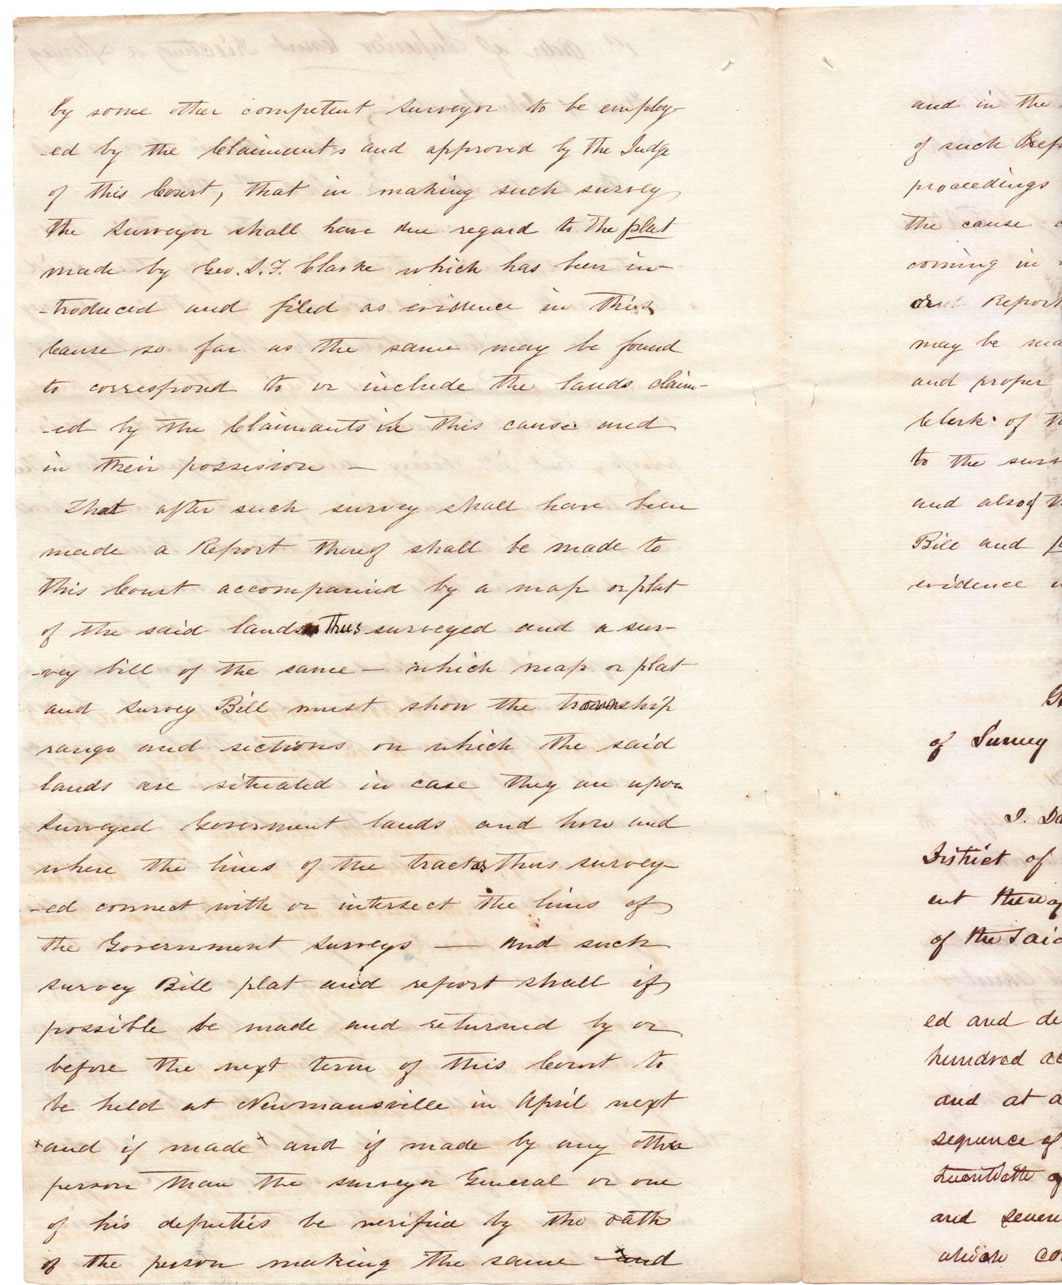 by some other competent surveyor to be employ-
-ed by the Claimants and approved by the Judge
of this Court, that in making such survey
the Surveyor shall have due regard to the plat
made by Geo. I. F. Clarke which has been in-
-troduced and filed as evidence in this
Cause so far as the same may be found
to correspond to or include the lands claim-
-ed by the Claimants in this cause and
in their possession —
That after such survey shall have been
made a Report thereof shall be made to
this Court accompanied by a map or plat
of the said lands thus surveyed and a sur-
-vey bill of the same — which map or plat
and Survey Bill must show the township
range and sections on which the said
lands are situated in case they are upon
Surveyed Government lands and how and
where the lines of the tracts thus survey-
-ed connect with or intersect the lines of
the Government Surveys — and such
survey Bill plat and report shall if
possible be made and returned by or
before the next term of this Court to
be held at Newmansville in April next
and if made and if made by any other
person than the surveyor General or one
of his deputies be verified by the oath
of the person making the same and
and in the
of such Rep
proceedings
the cause
coming in
or Report
may be ma
and proper
Clerk of t
to the surv
and also of t
Bill and
evidence
of Survey
I. Da
District of
ent thereof
of the Said
ed and de
hundred ac
and at a
sequence of
twentieth of
and seven
which co